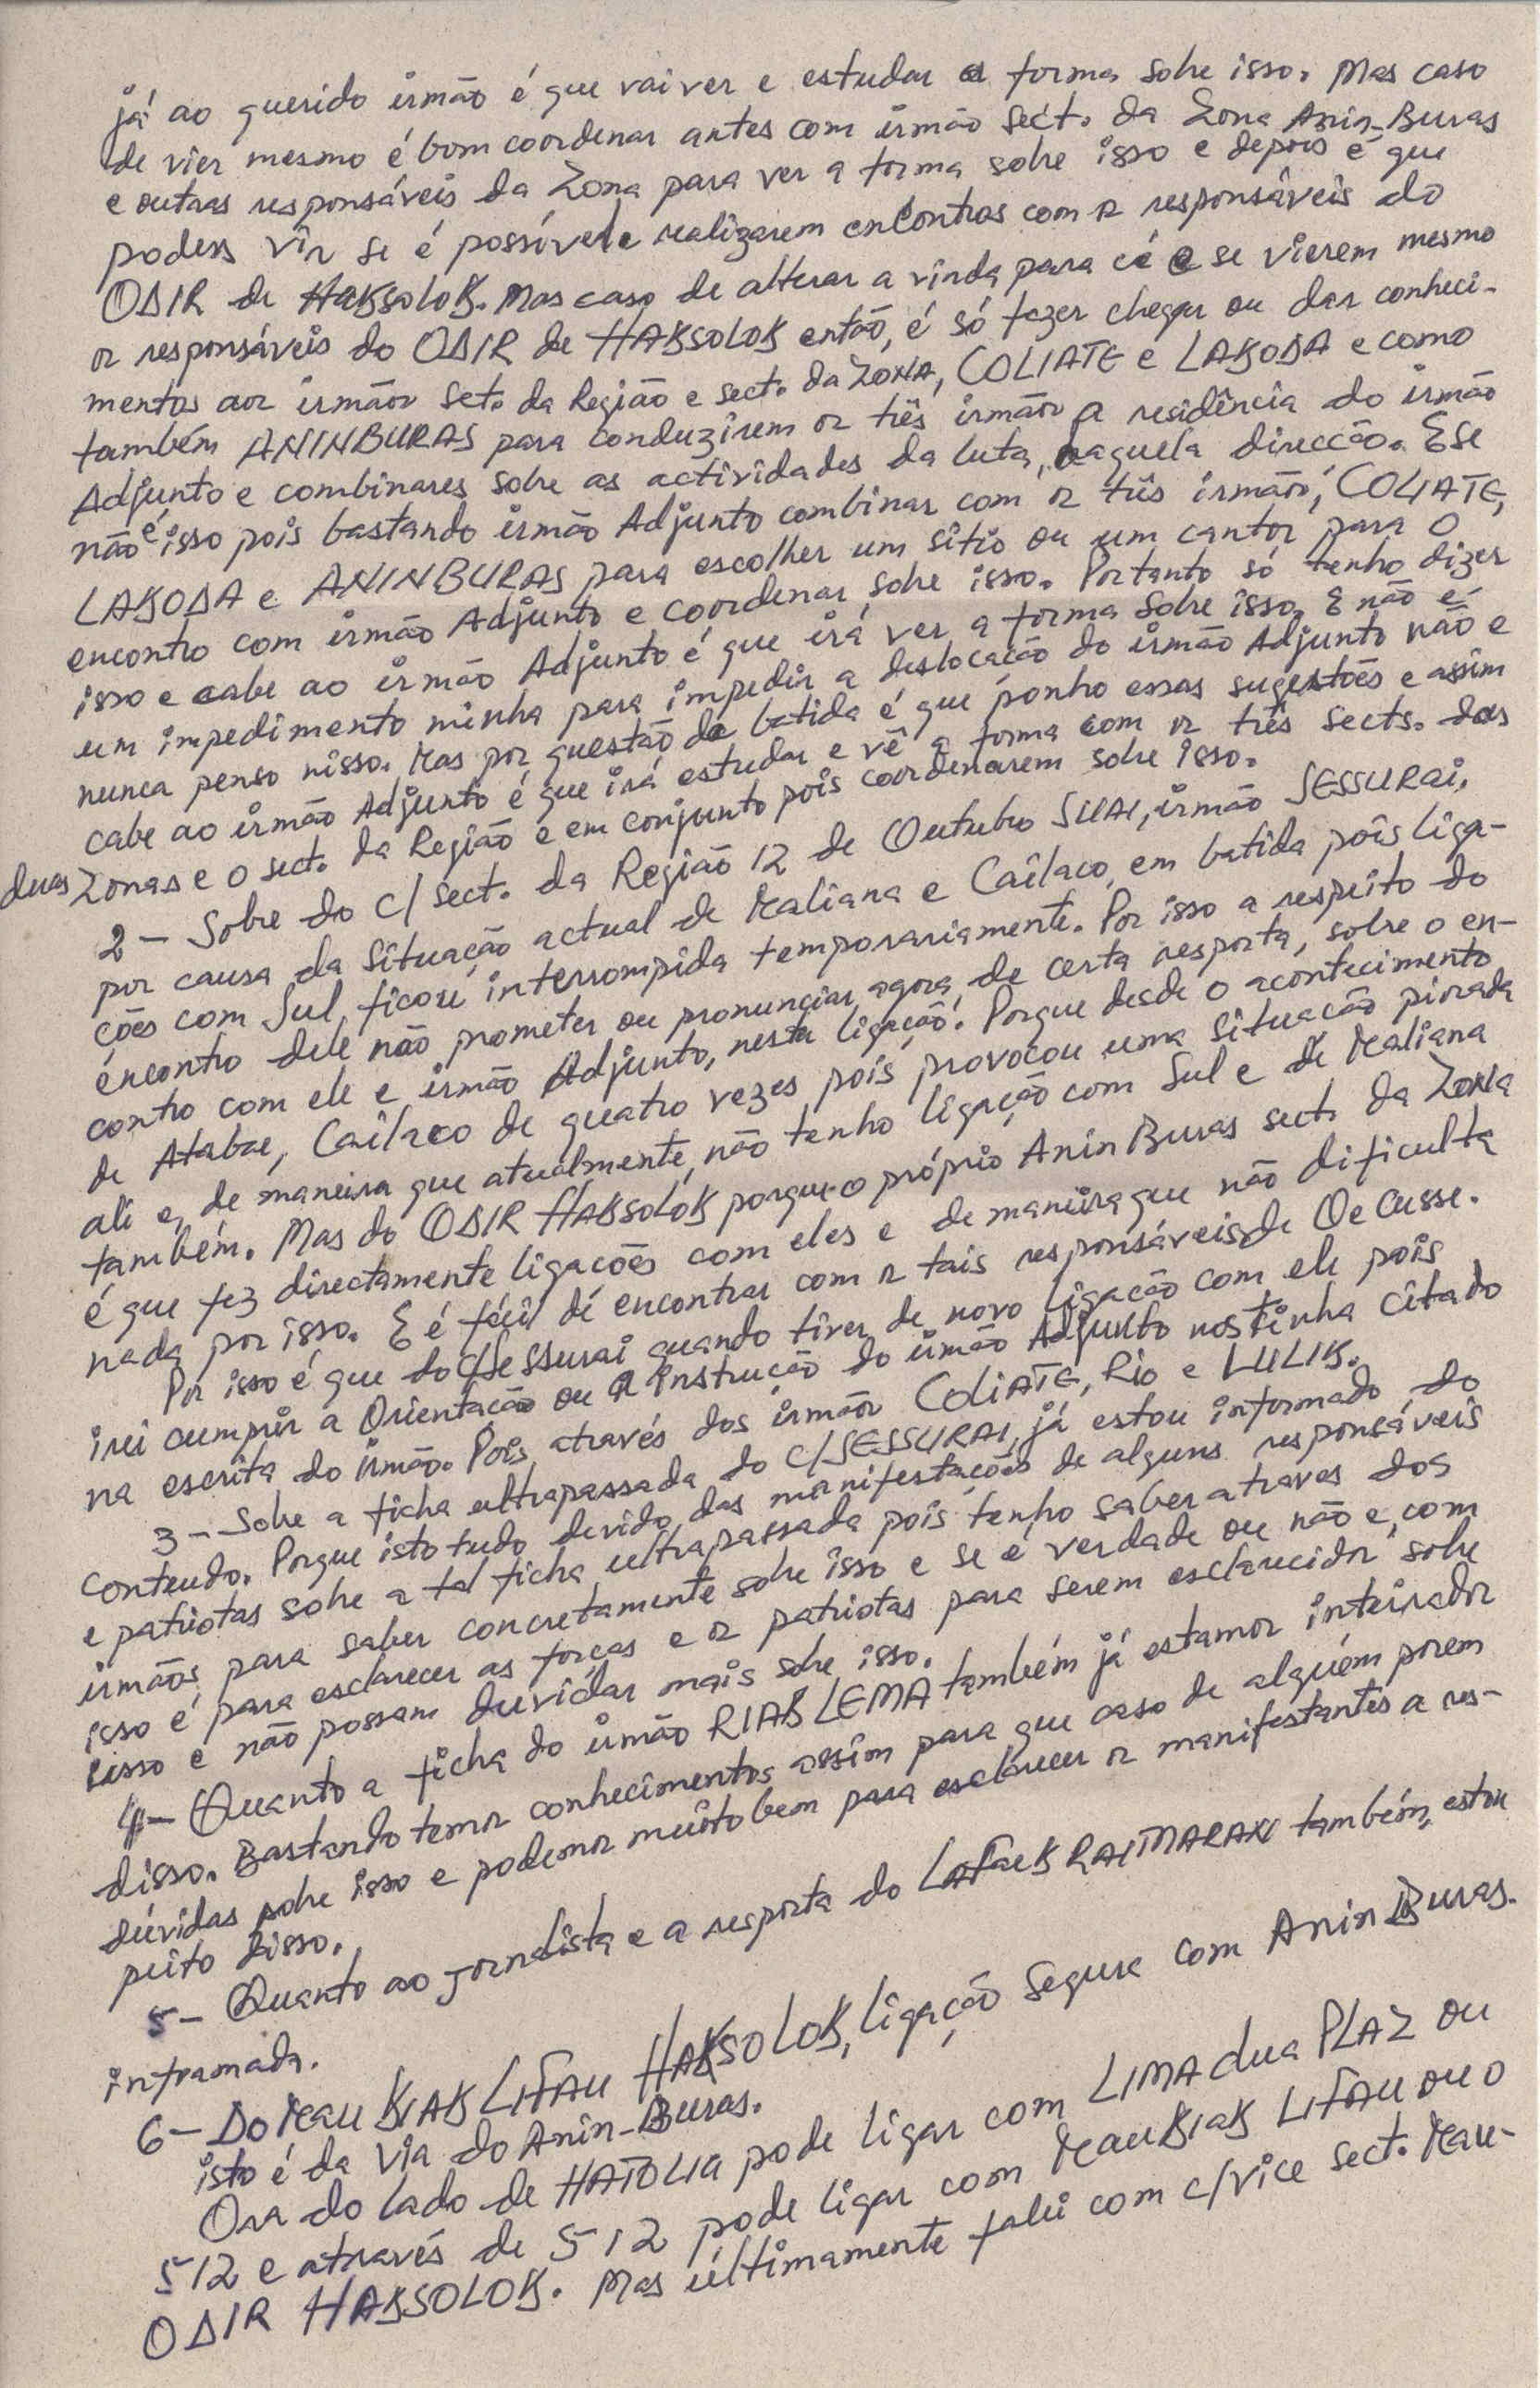 já ao querido irmão é que vai ver e estudar a forma sobre isso. Mas caso
de vier mesmo é bom coordenar antes com irmão Sect. da Zona Anin-Buras
e outras responsáveis da Zona para ver a forma sobre isso e depois é que
podess vir se é possível e realizarem encontros com os responsáveis do
ODIR de Haksolok. Mas caso de alterar a vinda para cá e se vierem mesmo
os responsáveis do ODIR de HAKSOLOK então, é só fazer chegar ou dar conheci-
mentos aos irmãos Set. da Região e sect. da ZONA, COLIATE e LAKODA e como
também ANINBURAS para conduzirem os três irmãos a residência do irmão
Adjunto e combinares sobre as actividades da luta, naquela direcção. E se
não é isso pois bastando irmão Adjunto combinar com os três irmãos, COLIATE,
LAKODA e ANINBURAS para escolher um sítio ou um cantor para o
encontro com irmão Adjunto e coordenar sobre isso. Portanto só tenho dizer
isso e cabe ao irmão Adjunto é que irá ver a forma sobre isso. E não é
um impedimento minha para impedir a deslocação do irmão Adjunto não e
nunca penso nisso. Mas por questão de batida é que ponho essas sugestões e assim
cabe ao irmão Adjunto é que irá estudar e vê a forma com os três sects. das
duas Zonas e o sect. da Região e em conjunto pois coordenarem sobre isso.
2 - Sobre do c/ sect. da Região 12 de Outubro SUAI, irmão SESSURAI,
por causa da situação actual de Maliana e Cailaco, em batida pois liga-
ções com Sul, ficou interrompida temporariamente. Por isso a respeito do
encontro dele não prometer ou pronunciar agora, de certa resposta, sobre o en-
contro com ele e irmão Adjunto, nesta ligação. Porque desde o acontecimento
de Atabae, Cailaco de quatro vezes pois provocou uma situação piorada
ali e, de maneira que atualmente, não tenho ligação com Sul e de Maliana
também. Mas do ODIR HAKSOLOK porque o próprio Anin Buras sect. da ZONA
é que fez directamente ligações com eles e de maneira que não dificulta
nada por isso. E é fácil de encontrar com os tais responsáveis de OeCusse.
Por isso é que do c/Sessurai quando tiver de novo ligação com ele pois
irei cumprir a Orientação ou a Instrução do irmão Adjunto nos tinha citado
na escrita do irmão. Pois através dos irmãos COLIATE, Rio e LULIK.
3 - Sobre a ficha ultrapassada do c/SESSURAI, já estou informado do
conteudo. Porque isto tudo devido das manifestações de alguns responsáveis
e patriotas sobre a tal ficha ultrapassada pois tenho saber atraves dos
irmãos para saber concretamente sobre isso e se é verdade ou não e, com
isso é para esclarecer as forças e os patriotas para serem esclarecidos sobre
isso e não possam duvidar mais sobre isso.
4 - Quanto a ficha do irmão RIAK LEMA também já estamos inteirados
disso. Bastando temos conhecimentos assim para que caso de alguém porem
dúvidas sobre isso e podemos muito bem para esclarecer os manifestantes a res-
peito disso.
5 - Quanto ao jornalista e a resposta do Lafaek RAIMARAN também, estou
informado.
6 - Do Mau KIAK LIFAU HAKSOLOK, ligação segura com Anin Buras.
isto é da via do Anin-Buras.
Ora do lado de HATOLIA pode ligar com LIMA dua PLAZ ou
512 e através de 512 pode ligar com MauKiak LIFAU ou o
ODIR HAKSOLOK. Mas últimamente falei com c/vice sect. Mau-